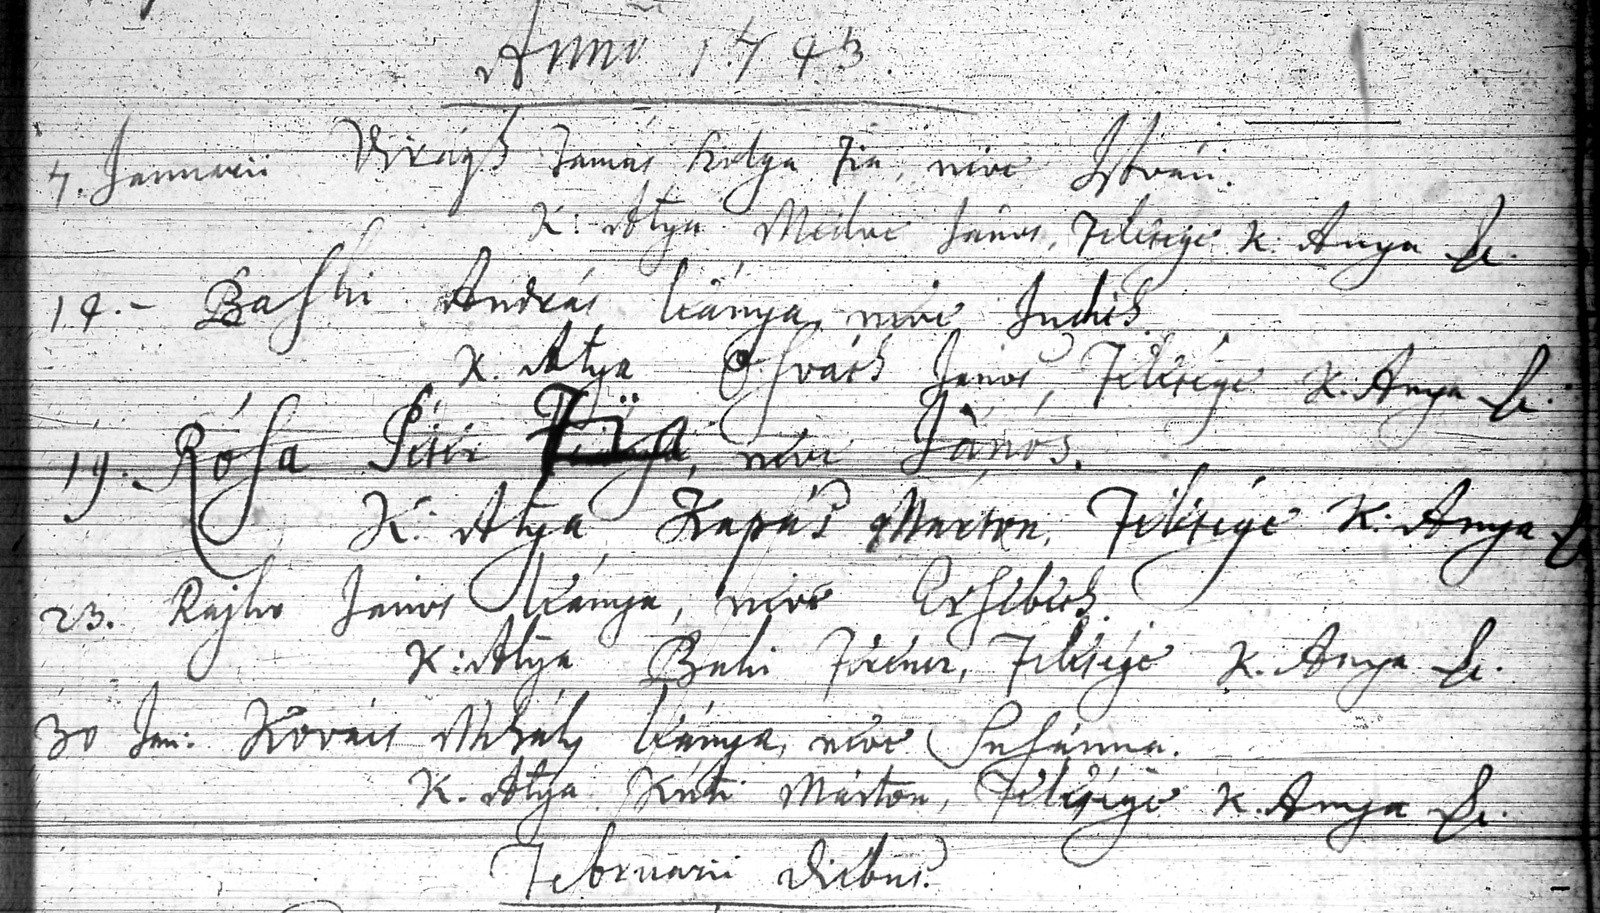 Anno 1743.
7. Januarii Virágh Tamás Fia, neve István.
K: Atya Medve János, Felesége K: Anya &c.
14. - András Leánya, neve Judith.
K. Atya Horváth János, Felesége K. Anya &c.
19. Rósa Péter Fija, neve János.
K: Atya Kapás Márton, Felesége K: Anya &c
23. János Leánya, neve Ersébeth.
K: Atya Ferencz, Felesége K. Anya &c.
30 Jan: Kovács Mihály Leánya, neve Susánna.
K. Atya Kúti Márton, Felesége K. Anya &c.
Februarii diebus.